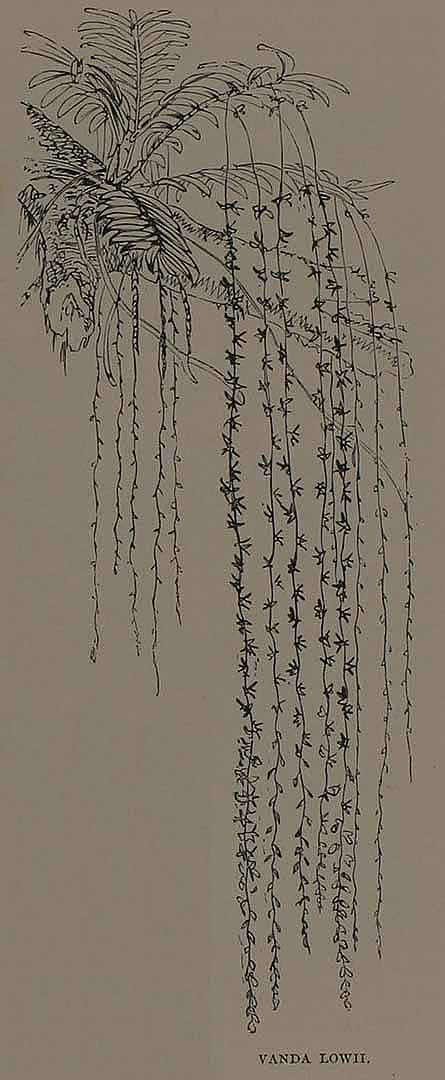 VANDA LOWII.